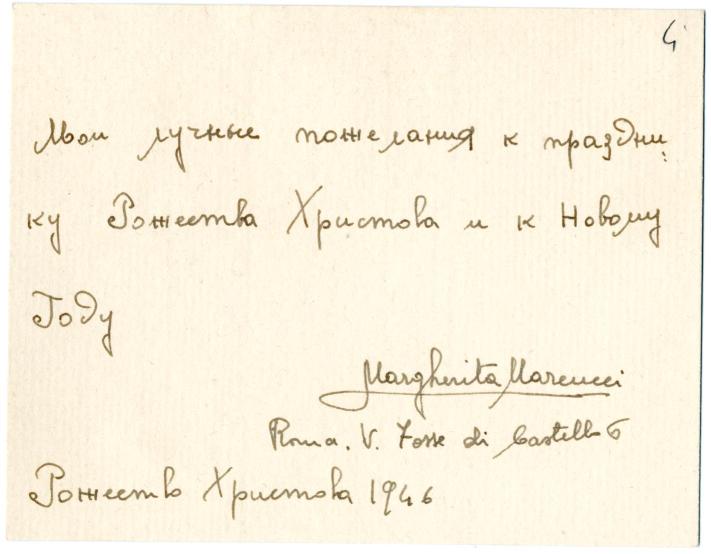 4
Мои лучные пожелания к праздни:
ку Рожества Христова и к Новому
Году
Margherita Marcucci
Roma. V. Fosse di Castello 6
Рожество Христова 1946